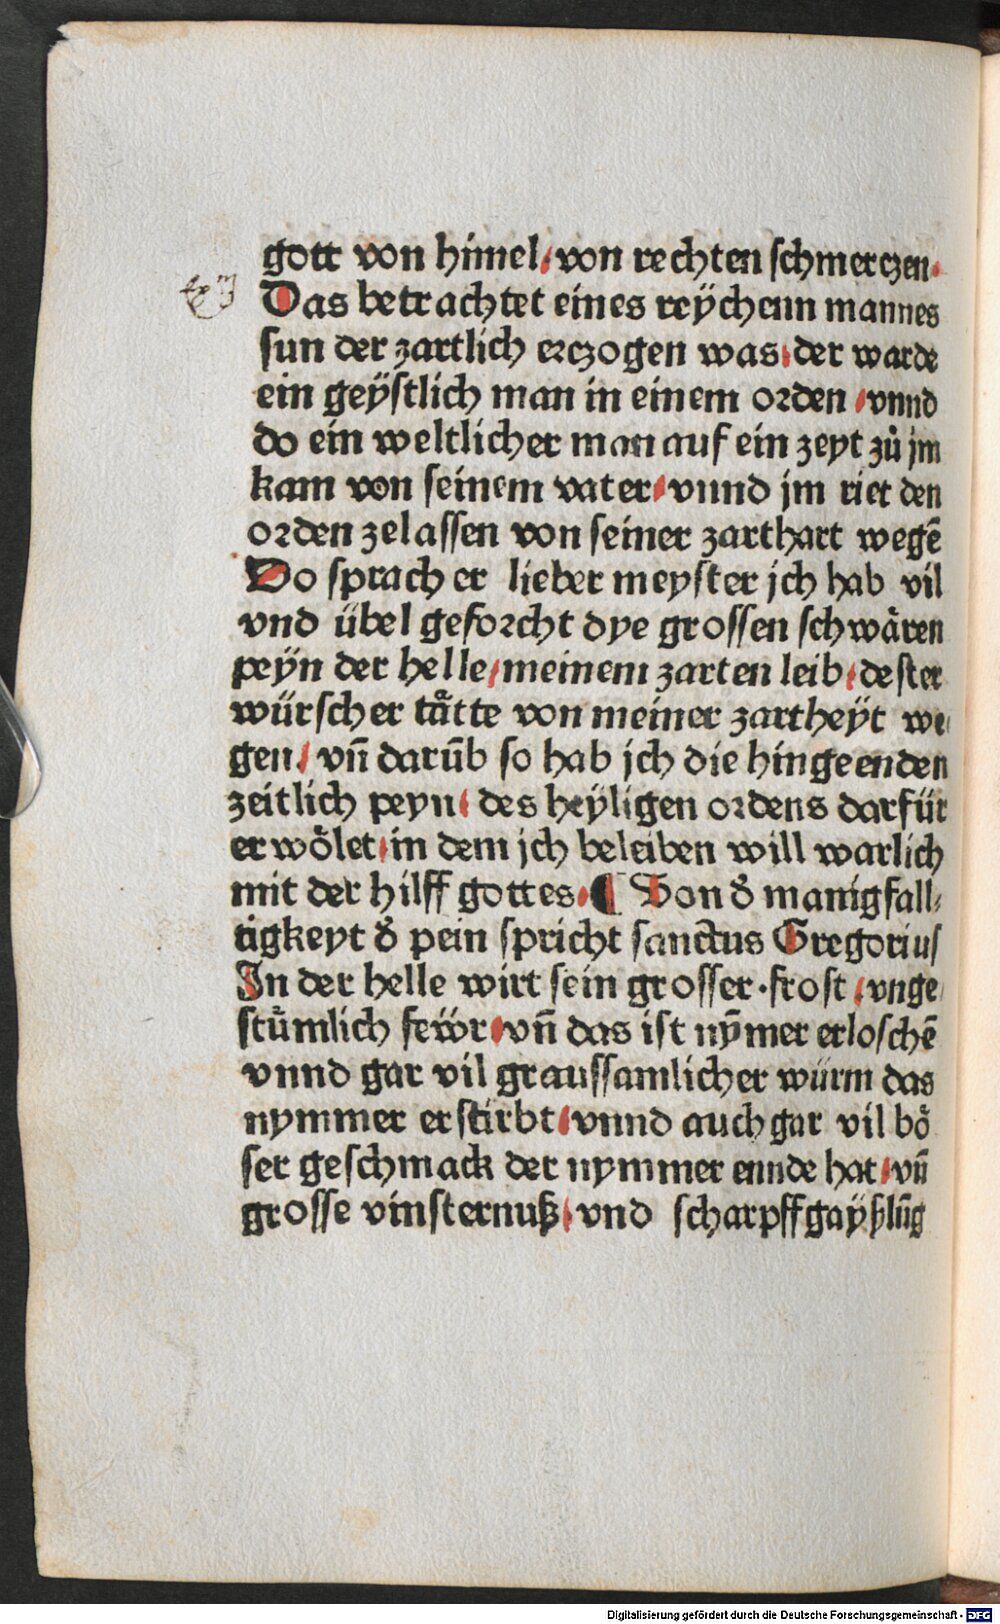 gott von himel / von rechten schmerczen.
Das betrachtet eines reÿchenn mannes
sun der zartlich erczogen was / der warde
ein geÿstlich man in einem orden / vnnd
do ein weltlicher man auf ein zeyt zů jm
kam von seinem vater / vnnd jm riet den
orden zelassen von seiner zarthart wegē
Do sprach er lieber meyster jch hab vil
vnd übel geforcht dye grossen schwären
peÿn der helle / meinem zarten leib / dester
würscher tätte von meiner zartheÿt we
gen / vn̄ darūb so hab jch die hingeenden
zeitlich peyn / des heÿligen ordens darfür
erwölet / in dem jch beleiben will warlich
mit der hilff gottes. ¶ Von d̕ manigfall⸗
tigkeyt d̕ pein spricht sanctus Gregorius
In der helle wirt sein grosser frost / vnge
stümlich feẅr / vn̄ das ist nȳmer erloschē
vnnd gar vil graussamlicher würm das
nymmer erstirbt / vnnd auch gar vil bö
ser geschmack der nymmer ennde hat / vn̄
grosse vinsternuß / vnd scharpff gaÿßlūg
Digitalisierung gefördert durch die Deutsche Forschungsgemeinschaft - DFG